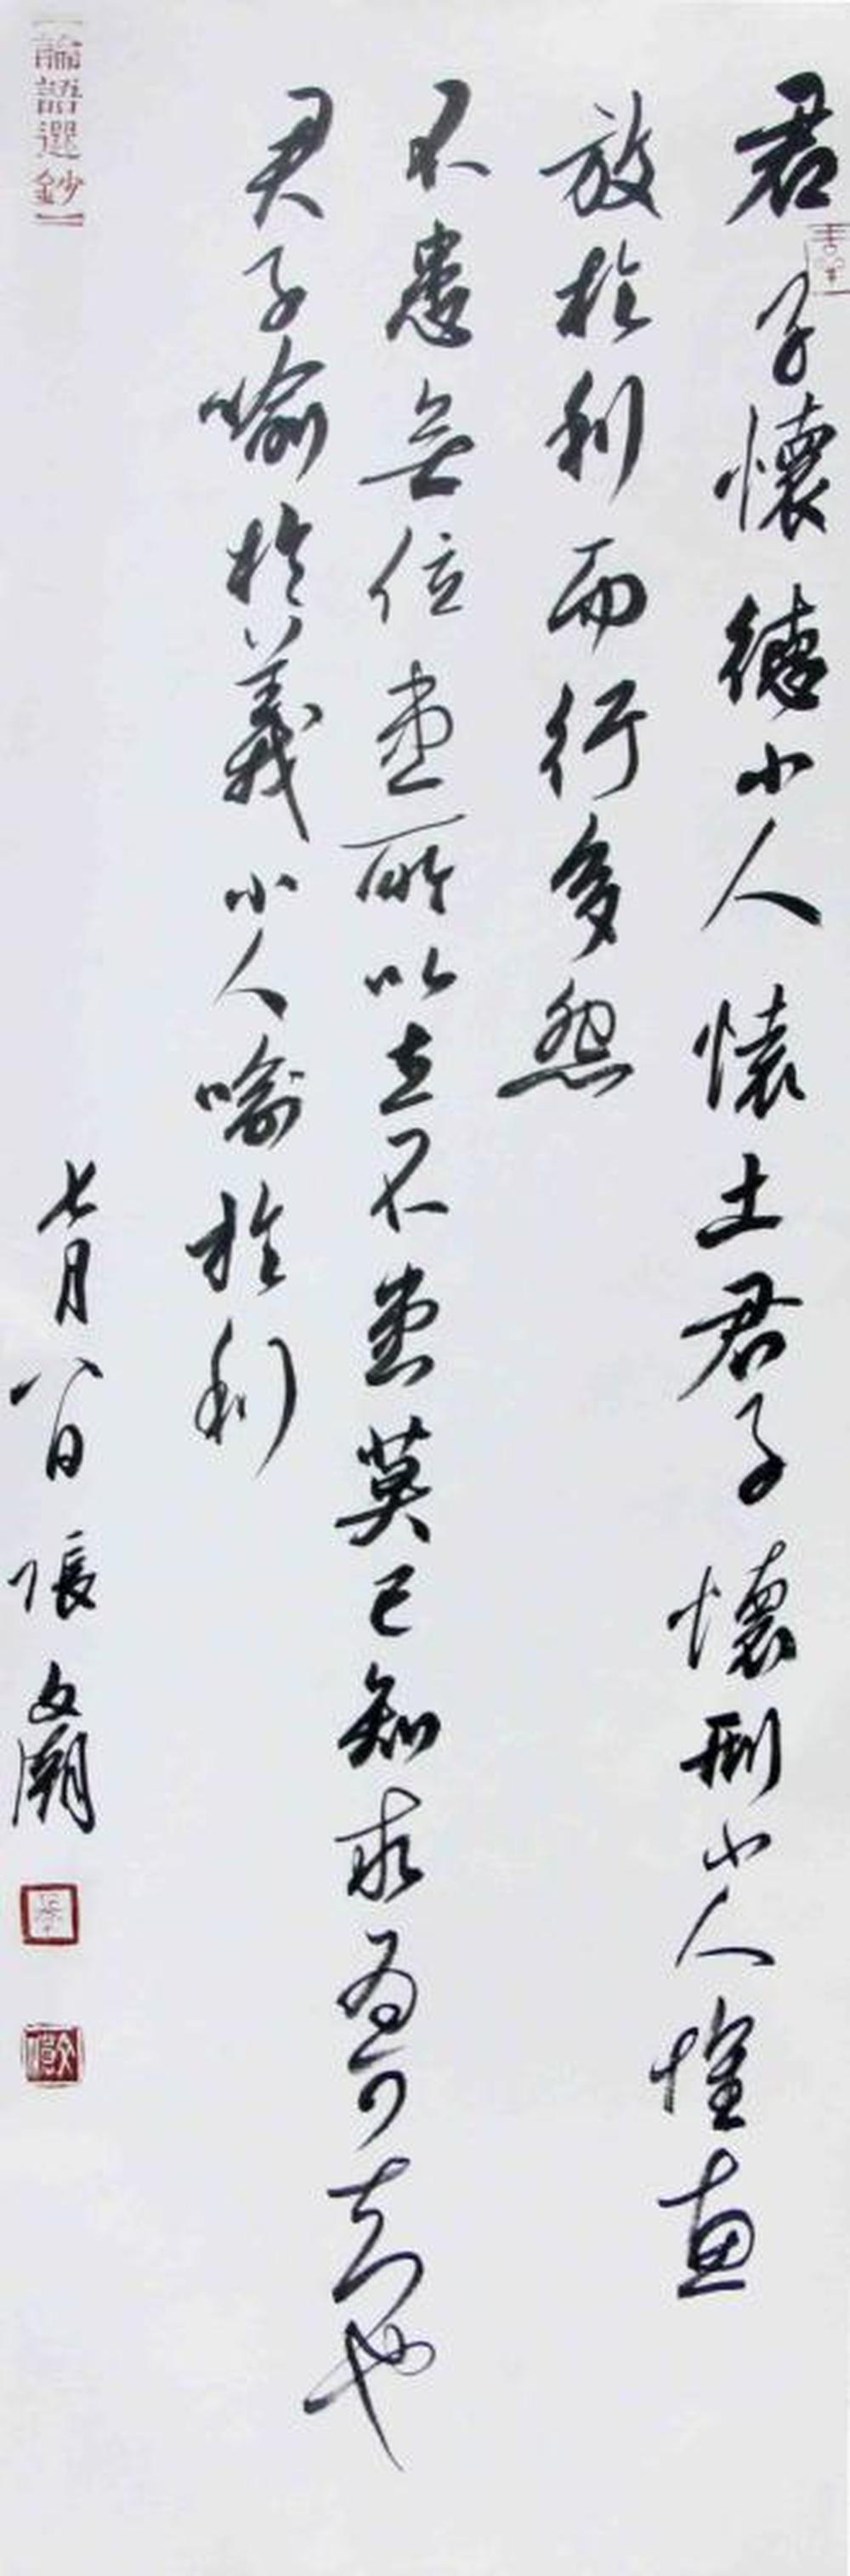 君子懷德小人懷土君子懷刑小人懷惠
放於利而行多怨
不患無位患所以立不患莫己知求為可知也
君子喻於義小人喻於利
七月八日張文潮
【論語選鈔】